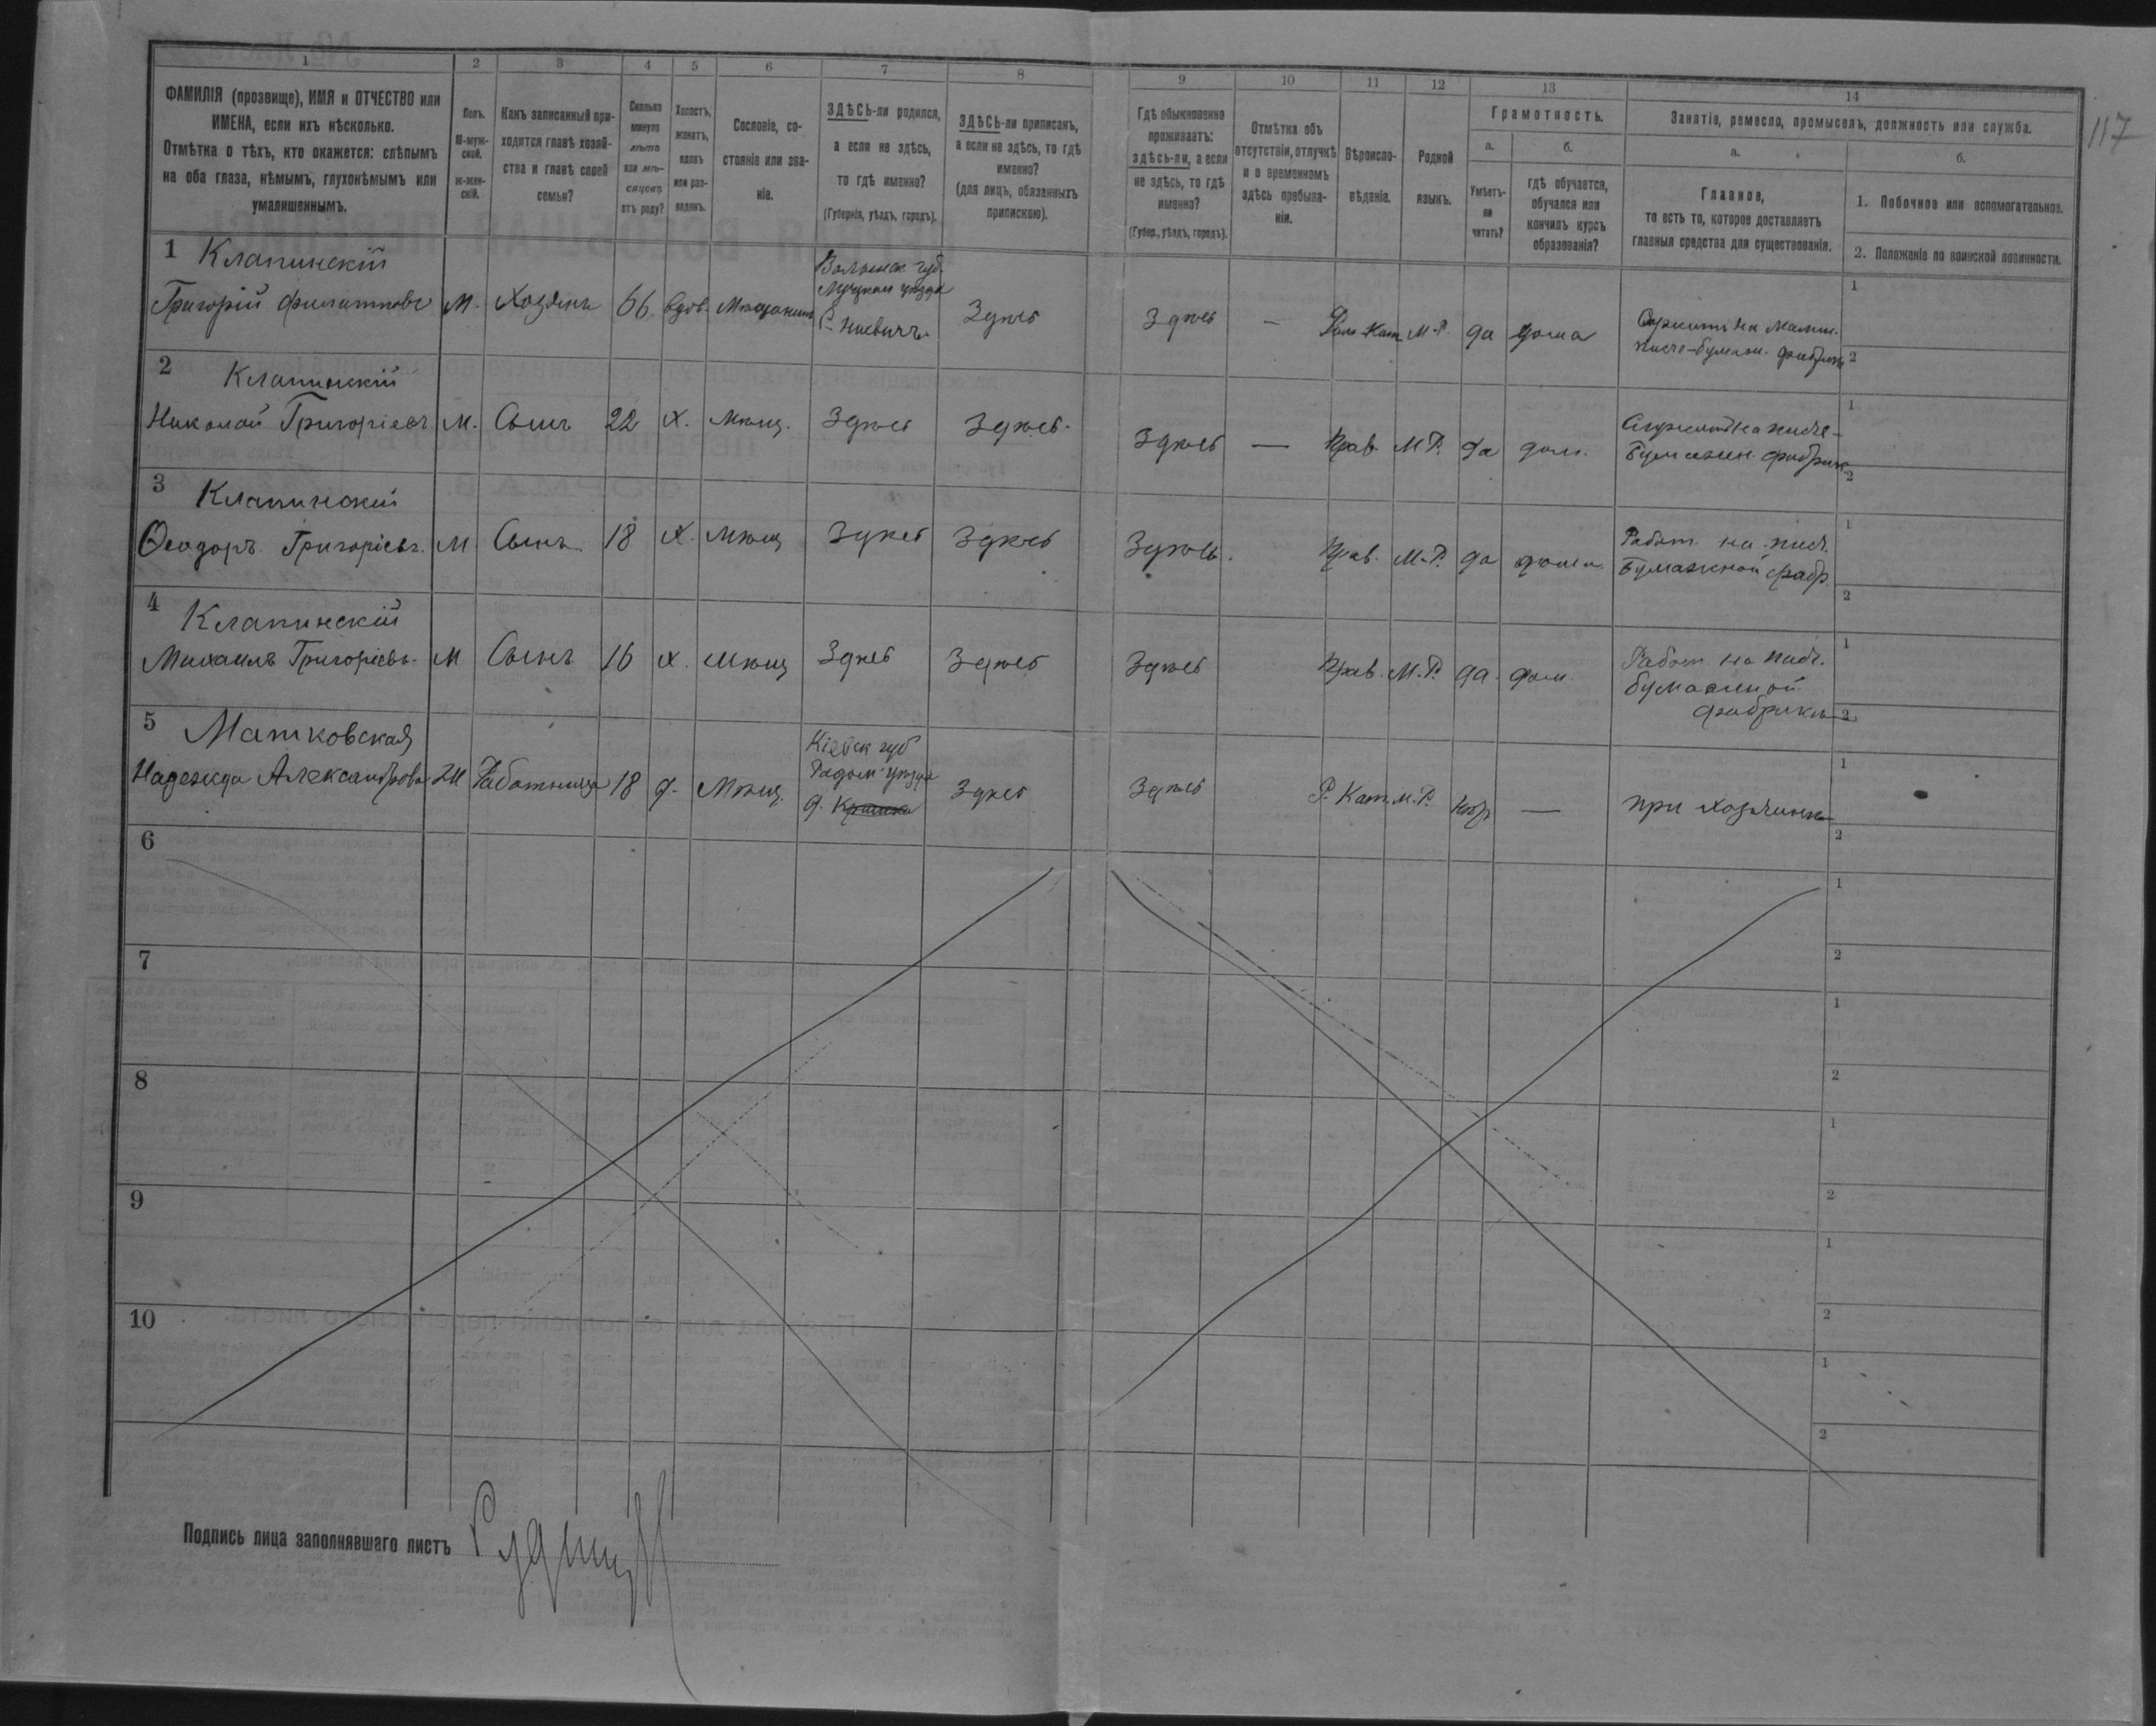 117
1 2 3 4 5 6 7 8 9 10 11 12 13 14
ФАМИЛІЯ (прозвище), ИМЯ и ОТЧЕСТВО или
ИМЕНА, если ихъ нѣсколько.
Отмѣтка о тѣхъ, кто окажется: слѣпымъ
на оба глаза, нѣмымъ, глухонѣмымъ или
умалишеннымъ.
Полъ.
М-муж-
ской.
ж-жен-
скій.
Какъ записанный при-
ходится главѣ хозяй-
ства и главѣ своей
семьи?
Сколько
минуло
лѣтъ
или мѣ-
сяцевъ
отъ роду?
Холостъ,
женатъ,
вдовъ
или раз-
веденъ.
Сословіе, со-
стояніе или зва-
ніе.
ЗДѢСЬ-ли родился,
а если не здѣсь,
то гдѣ именно?
(Губернія, уѣздъ, городъ).
ЗДѢСЬ-ли приписанъ,
а если не здѣсь, то гдѣ
именно?
(для лицъ, обязанныхъ
припискою).
Гдѣ обыкновенно
проживаетъ:
здѣсь-ли, а если
не здѣсь, то гдѣ
именно?
(Губер., уѣздъ, городъ).
Отмѣтка объ
отсутствіи, отлучкѣ
и о временномъ
здѣсь пребыва-
ніи.
Вѣроиспо-
вѣданіе.
Родной
языкъ.
Грамотность.
а.
Умѣетъ-
ли
читать?
б.
гдѣ обучается,
обучался или
кончилъ курсъ
образованія?
Занятіе, ремесло, промыселъ, должность или служба.
а.
Главное,
то есть то, которое доставляетъ
главныя средства для существованія.
б.
1. Побочное или вспомогательное.
2. Положеніе по воинской повинности.
1 Клапинскій
Григорій М. Хозяинъ 66 вдов. Мѣщанинъ
Волынск. губ.
Луцкаго уѣзда
Здѣсь Здѣсь — Рим. Кат. М-Р. да дома
Служитъ на
писче-бумаж. фабрикѣ
1
2
2 Клапинскій
Николай Григоріевъ М. Сынъ 22 Х. Мѣщ. Здѣсь Здѣсь. Здѣсь — Прав. М Р. да дом.
Служитъ на писче-
бумажн. фабрик.
1
2
3 Клапинскій
Ѳеодоръ Григоріевъ. М. Сынъ 18 Х. Мѣщ Здѣсь Здѣсь Здѣсь. Прав. М.Р. да дома.
Работ. на писч.
бумажной фабр.
1
2
4 Клапинскій
Михаилъ Григоріевъ. М Сынъ 16 х. Мѣщ Здѣсь Здѣсь Здѣсь Прав. М.Р. да. дом.
Работ. на писч.
бумажной
фабрикѣ
1
2
5 Матковская
Надежда Александрова Ж Работница 18 д. Мѣщ.
Кіевск губ
Радом. уѣзда
Здѣсь Здѣсь Р. Кат. М.Р. нѣтъ — при хозяинѣ
1
2
6
1
2
7
1
2
8
1
2
9
1
2
10
1
2
Подпись лица заполнявшаго листъ